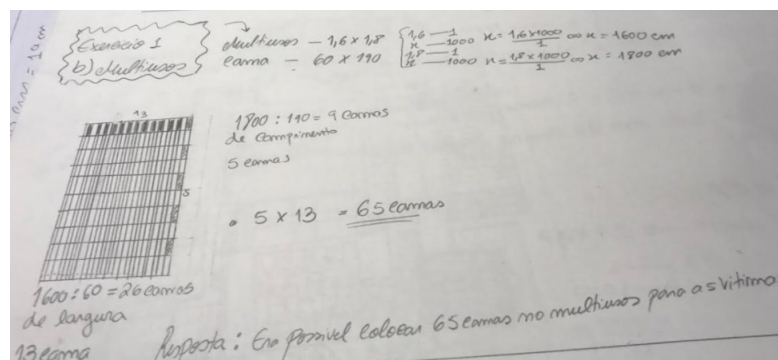 Exercício 1
b) Multiusos
Multiusos — 1,6 x 1,8
cama — 60 x 190
1,6 — 1
x — 1000 x = 1,6 x 1000 / 1 ∞ x = 1600 cm
1,8 — 1
x — 1000 x = 1,8 x 1000 / 1 ∞ x = 1800 cm
13
1800 : 190 = 9 camas
de comprimento
5 camas
5
• 5 x 13 = 65 camas
1600 : 60 = 26 camas
de largura
13 cama
Resposta: Era possível colocar 65 camas no multiusos para as vitima